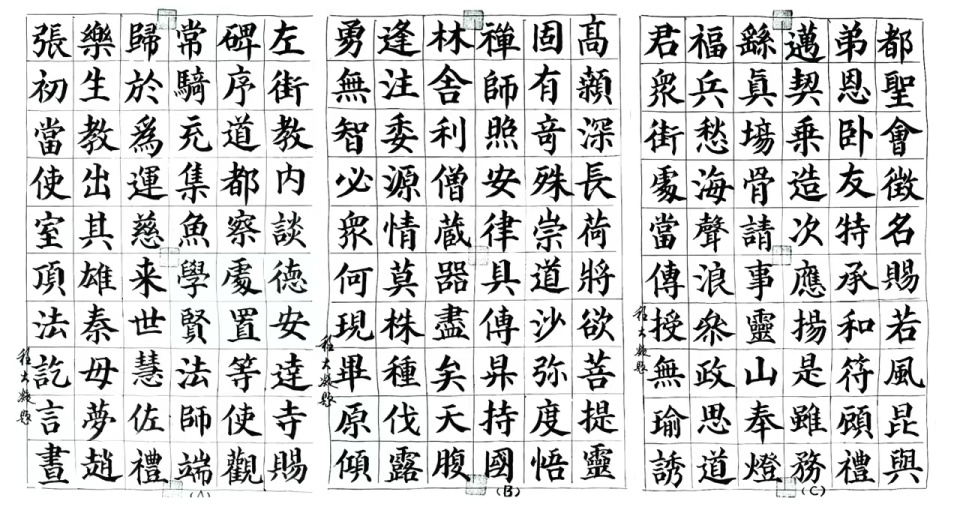 左街教内談德安達寺賜
碑序道都察處置等使觀
常騎充集魚學賢法師端
歸於爲運慈来世慧佐禮
樂生教出其雄秦母夢趙
張初當使室頂法訖言晝
(A)
高顙深長荷將欲菩提靈
固有竒殊崇道沙弥度悟
禪師照安律具傳昇持國
林舍利僧蔵器盡矣天腹
逢注委源情莫株種伐露
勇無智必衆何現畢原傾
(B)
都聖會徵名賜若風昆與
弟恩卧友特承和符顧禮
邁契乗造次應揚是雖務
繇眞場骨請事靈山奉燈
福兵愁海聲浪叅政思道
君衆街處當傳授無瑜誘
(C)